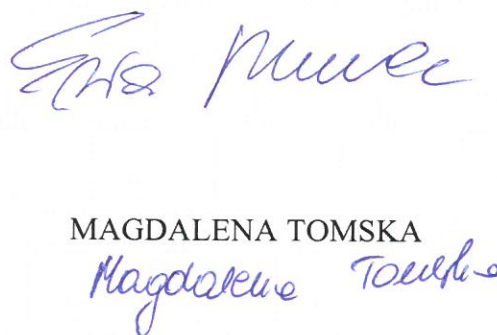 Ewa
MAGDALENA TOMSKA
Magdalena Tomska